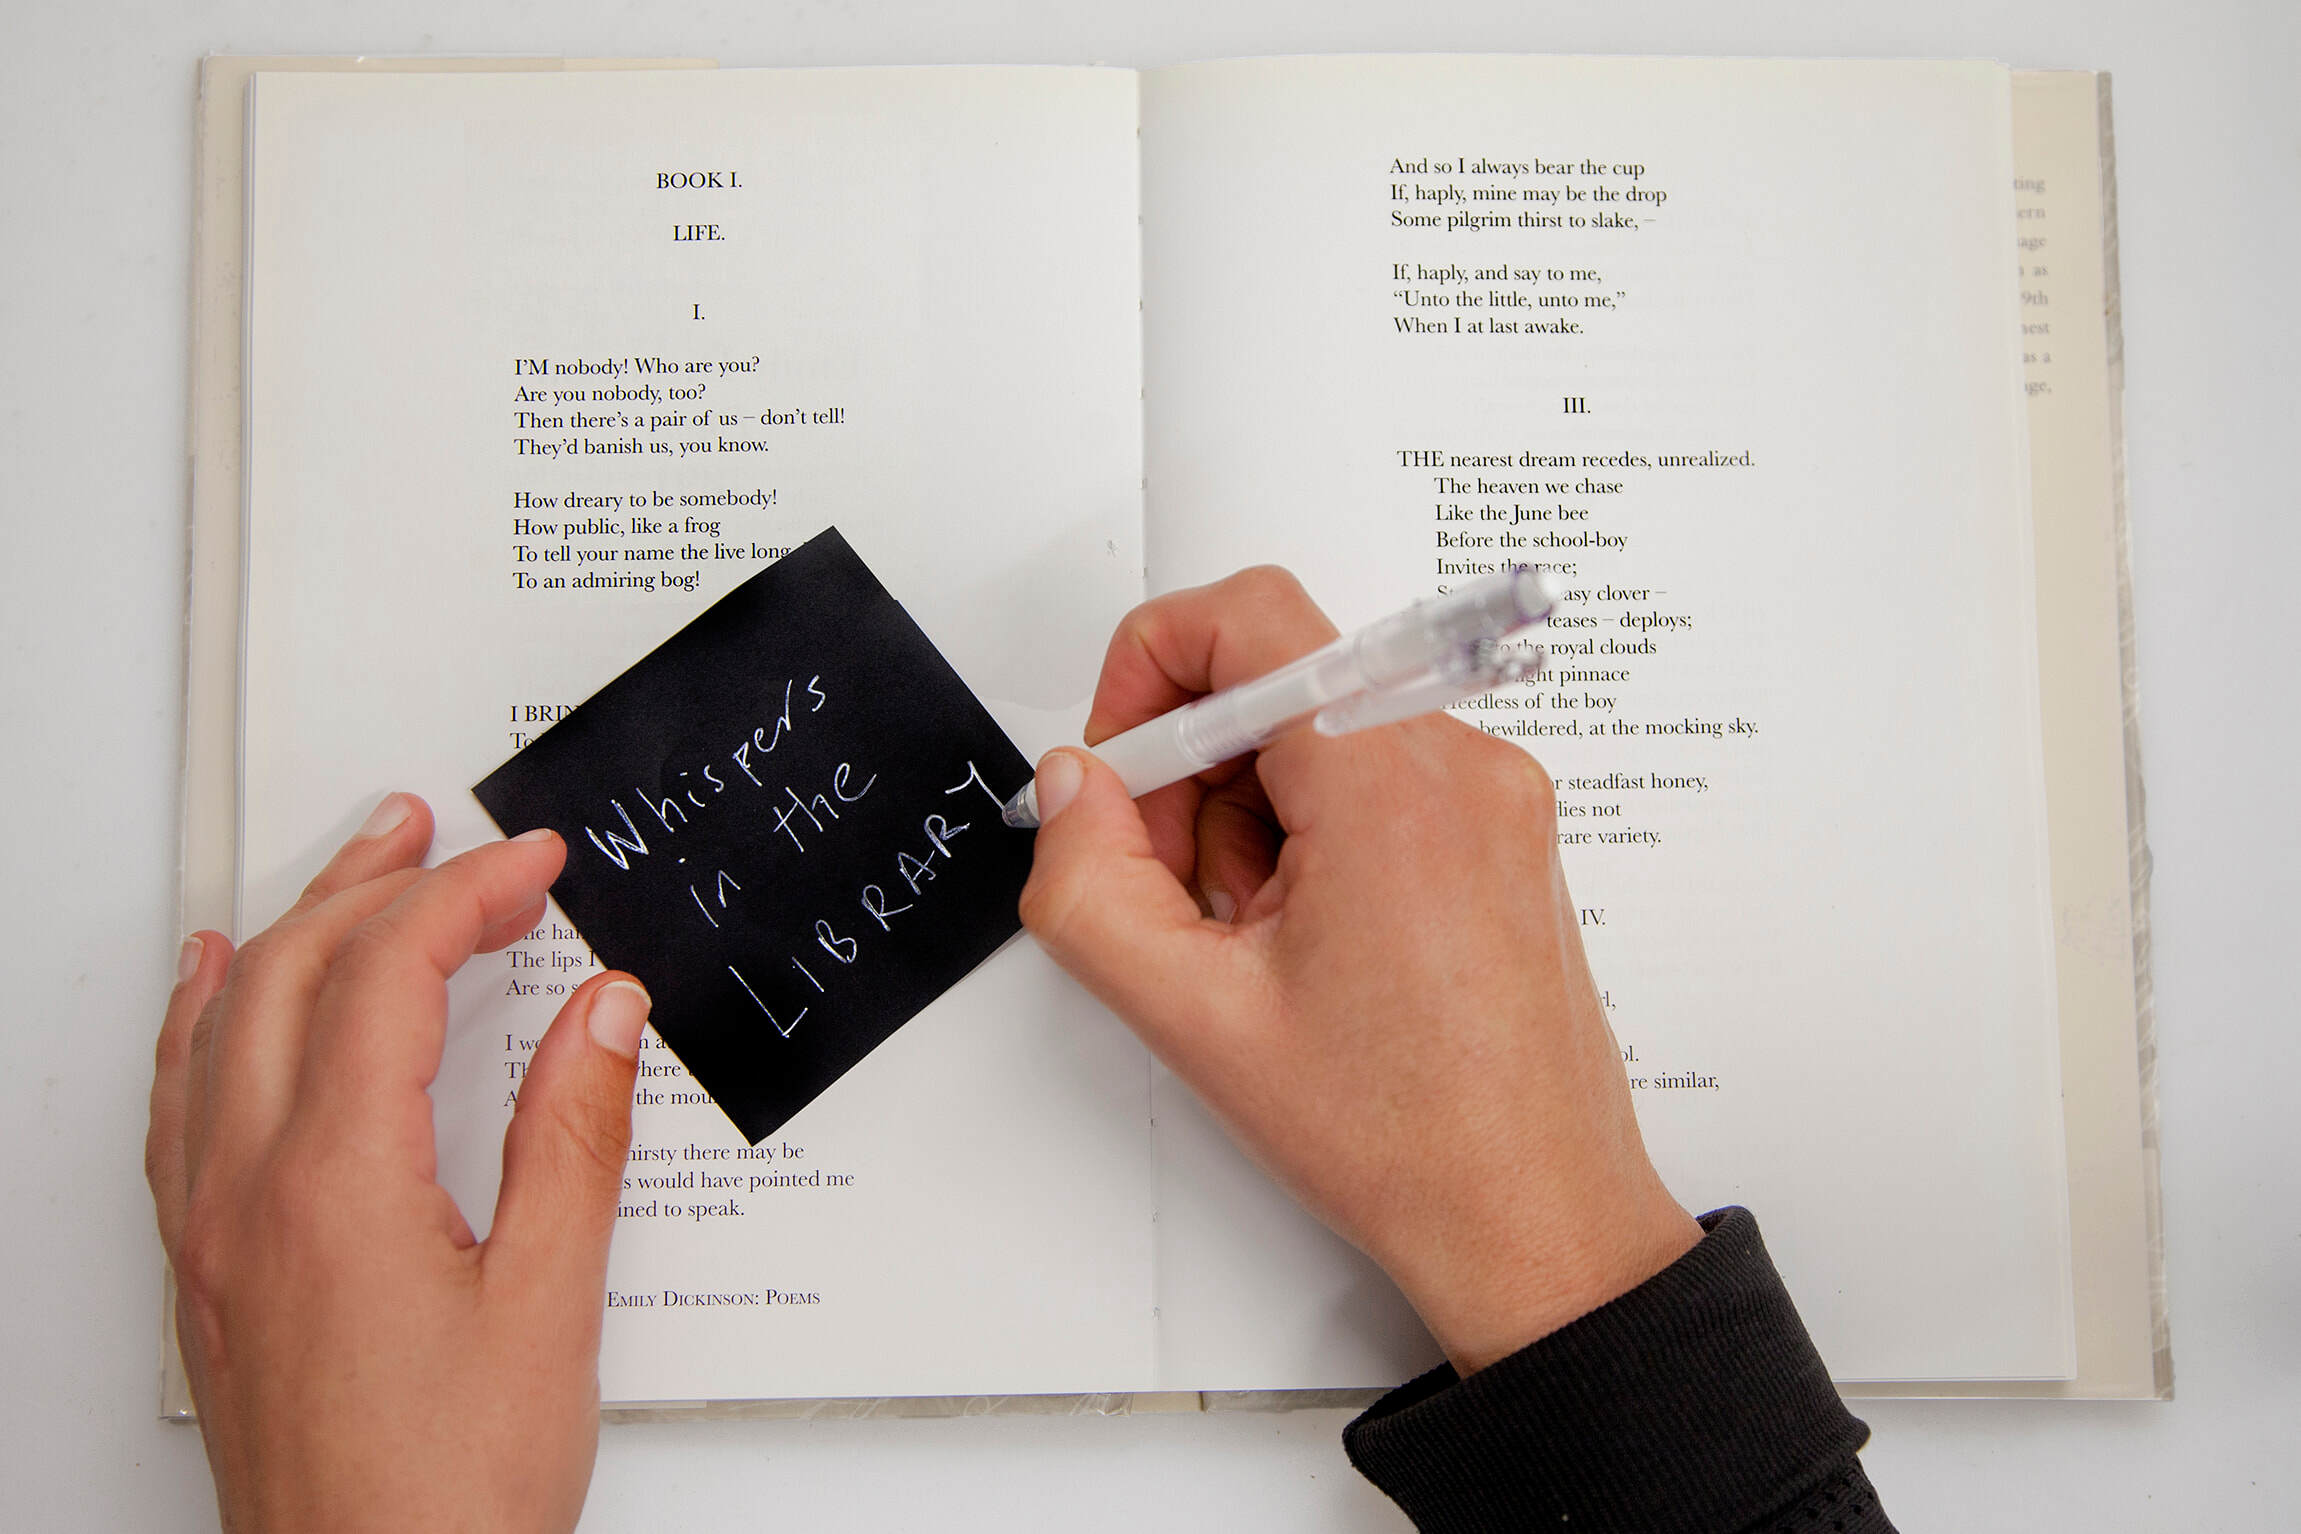 BOOK I.
LIFE.
I.
I'M nobody! Who are you?
Are you nobody, too?
Then there's a pair of us – don't tell!
They'd banish us, you know.
How dreary to be somebody!
How public, like a frog
To tell your name the live long
To an admiring bog!
I
To
The lips I
Are so
I
the
thirsty there may be
would have pointed me
to speak.
EMILY DICKINSON: POEMS
Whispers
in the
LIBRARY
And so I always bear the cup
If, haply, mine may be the drop
Some pilgrim thirst to slake, –
If, haply, and say to me,
“Unto the little, unto me,”
When I at last awake.
III.
THE nearest dream recedes, unrealized.
The heaven we chase
Like the June bee
Before the school-boy
Invites the race;
clover –
teases – deploys;
the royal clouds
pinnace
Heedless of the boy
bewildered, at the mocking sky.
steadfast honey,
flies not
rare variety.
IV.
similar,
as
9th
as a